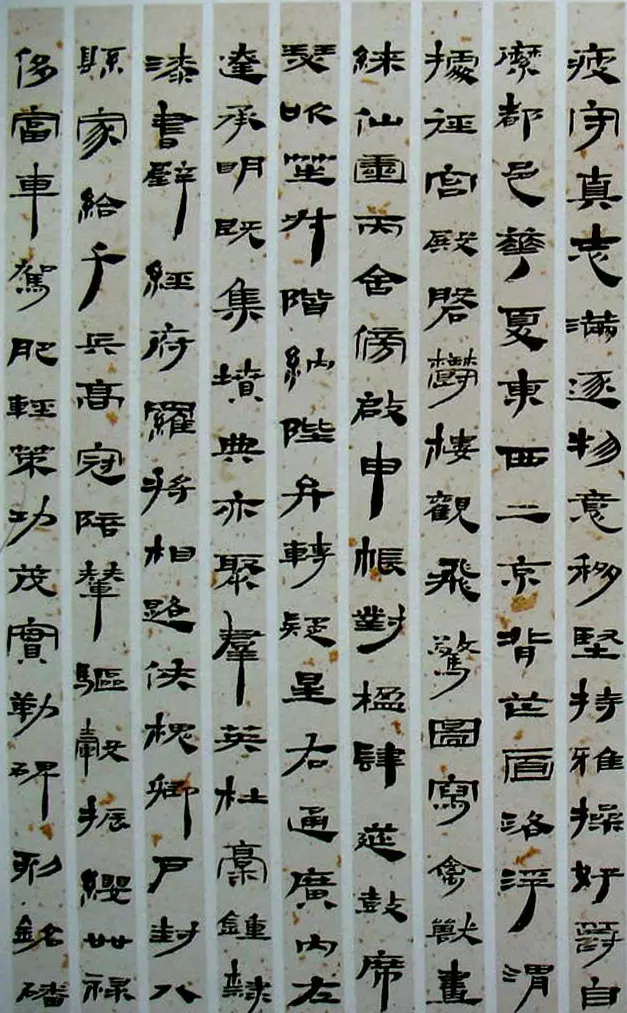 疲守真志滿逐物意移堅持雅操好爵自
縻都邑華夏東西二京背芒面洛浮渭
據涇宮殿盤鬱樓觀飛驚圖寫禽獸畫
綵仙靈丙舍傍啟甲帳對楹肆筵鼓席
瑟吹笙升階納陛弁轉疑星右通廣內左
達承明既集墳典亦聚羣英杜稾鍾隸
漆書壁經府羅將相路俠槐卿戶封八
縣家給千兵高冠陪輦驅轂振纓世祿
侈富車駕肥輕策功茂實勒碑刻銘磻